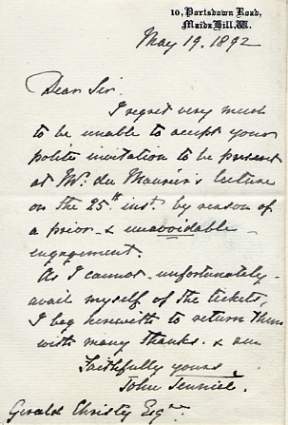 10, Portsdown Road,
Maida Hill. W.
May 19. 1892
Dear Sir.
I regret very much
to be unable to accept your
polite invitation to be present
at Mr. du Maurier's lecture
on the 25th inst. by reason of
a prior & unavoidable
engagement.
As I cannot unfortunately
avail myself of the tickets,
I beg herewith to return them
with many thanks. & am
Faithfully yours
John Tenniel.
Gerald Christy Esqre